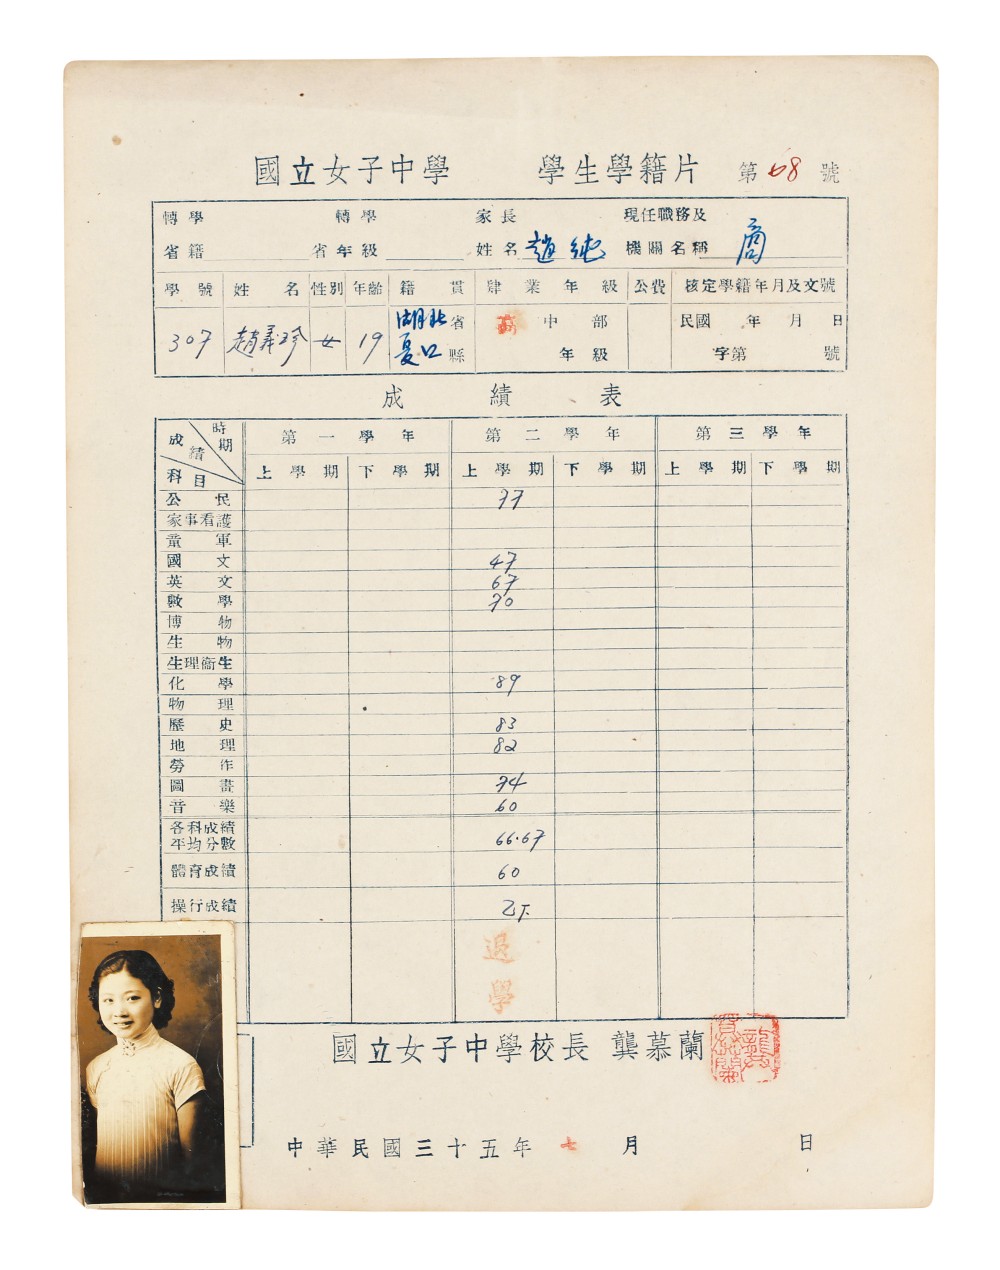 國立女子中學 學生學籍片 第 68 號
轉學省籍 轉學省年級 家長姓名 趙純 現任職務及機關名稱 商
學號 姓名 性別 年齡 籍貫 肄業年級 公費 核定學籍年月及文號
307 趙義珍 女 19 湖北省 高中部 民國 年 月 日
夏口縣 年級 字第 號
成績表
時期 成績 科目 第一學年 第二學年 第三學年
上學期 下學期 上學期 下學期 上學期 下學期
公民 77
家事看護
童軍
國文 47
英文 67
數學 70
博物
生物
生理衛生
化學 89
物理
歷史 83
地理 82
勞作
圖畫 74
音樂 60
各科成績平均分數 66.67
體育成績 60
操行成績 乙下
退學
國立女子中學校長 龔慕蘭
龔慕蘭
中華民國三十五年 七 月 日